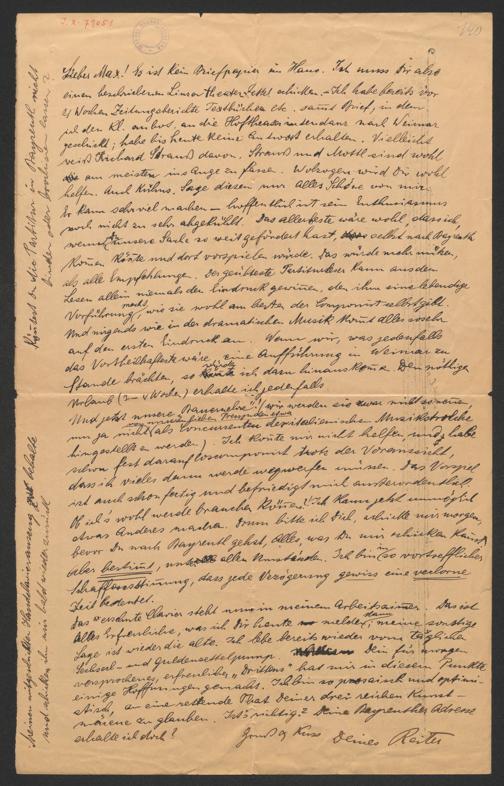 Lieber Max! Es ist kein Briefpapier im Haus. Ich muss Dir also
einen beschriebenen Linzer Theaterzettel schicken. – Ich habe bereits vor
Wochen Zeitungsberichte Textbücher etc. samt Brief, in dem
ich den Kl. anbot, an die Hoftheaterintendanz nach Weimar
geschickt; habe bis heute keine Antwort erhalten. Vielleicht
weiß Richard Strauß davon. Strauß und Mottl sind wohl
am meisten ins Auge zu fassen. Wolzogen wird Dir wohl
helfen. Sage diesen nur alles Schöne von mir.
Er kann sehr viel machen – hoffentlich ist sein Enthusiasmus
noch nicht zu sehr abgekühlt. Das allerbeste wäre wohl, dass ich,
wenn unsere Sache so weit gefördert hast, selbst nach Bayreuth
kommen könnte und dort vorspielen würde. Das würde mehr nützen,
als alle Empfehlungen. Der geübteste Partiturleser kann aus dem
Lesen allein niemals den Eindruck gewinnen, den ihm eine lebendige
Vorführung macht, wie sie wohl am besten der Componist selbst gibt.
Und nirgends wie in der dramatischen Musik kommt alles so sehr
auf den ersten Eindruck an. Wenn wir, was jedenfalls
das Vortheilhafteste wäre, eine Aufführung in Weimar zu
Stande brächten, so müsste ich dazu hinauskommen. Den nöthigen
Urlaub (3–4 Wochen) erhalte ich jedenfalls
Und jetzt unsere
nun ja nicht als Musikstrolche
hingestellt werden). Ich konnte mir nicht helfen, und habe
schon fest darauf loscomponirt trotz der Voraussicht,
dass ich vieles davon werde wegwerfen müssen. Das Vorspiel
ist auch schon fertig und befriedigt mich ausserordentlich.
Ob ich's wohl werde brauchen können? Ich kann jetzt unmöglich
etwas Anderes machen. Drum bitte ich Dich, schicke mir morgen,
bevor Du nach Bayreuth gehst, alles, was Du mir schicken kannst,
aber bestimmt, unter allen Umständen. Ich bin in so vortrefflicher
Schaffensstimmung, dass jede Verzögerung gewiss eine verlorne
Zeit bedeutet.
Das ersehnte Clavier steht nun in meinem Arbeitszimmer. Das ist
alles Erfreuliche, was ich Dir heute melde, denn meine sonstige
Lage ist wieder die alte. Ich lebe bereits wieder vom täglichen
Sechserl- und Guldenzettelpump. Dein für morgen
versprochenes, erfreuliches „Drittens" hat mir in diesem Punkte
einige Hoffnungen gemacht. Ich bin so prosaisch und optimi-
stisch, an eine rettende That Deiner drei reichen Kunst-
mäcene zu glauben. Ist's richtig? Deine Bayreuther Adresse
erhalte ich doch!
Gruß & Kuss Deines Reiter
Könntest Du die Partitur in Bayreuth nicht
binden oder brochiren lassen?
Meinen mitgeschickten behalte
und schicke ihn mir bald wieder zurück